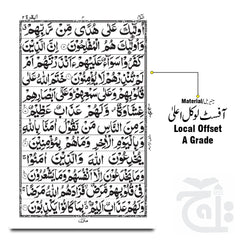 وَاُولٰٓئِكَ عَلٰى هُدًى مِّنْ رَّبِّهِمْ
وَاُولٰٓئِكَ هُمُ الْمُفْلِحُوْنَ اِنَّ الَّذِيْنَ
كَفَرُوْا سَوَآءٌ عَلَيْهِمْ ءَاَنْذَرْتَهُمْ اَمْ
لَمْ تُنْذِرْهُمْ لَا يُؤْمِنُوْنَ خَتَمَ اللّٰهُ عَلٰى
قُلُوْبِهِمْ وَعَلٰى سَمْعِهِمْ وَعَلٰٓى اَبْصَارِهِمْ
غِشَاوَةٌ وَّلَهُمْ عَذَابٌ عَظِيْمٌ
وَمِنَ النَّاسِ مَنْ يَّقُوْلُ اٰمَنَّا بِاللّٰهِ
وَبِالْيَوْمِ الْاٰخِرِ وَمَا هُمْ بِمُؤْمِنِيْنَ
يُخٰدِعُوْنَ اللّٰهَ وَالَّذِيْنَ اٰمَنُوْا
وَمَا يَخْدَعُوْنَ اِلَّآ اَنْفُسَهُمْ وَمَا يَشْعُرُوْنَ
فِيْ قُلُوْبِهِمْ مَّرَضٌ فَزَادَهُمُ اللّٰهُ مَرَضًا
وَلَهُمْ عَذَابٌ اَلِيْمٌ بِمَا كَانُوْا يَكْذِبُوْنَ
Material
آفسٹ لوکل اعلیٰ
Local Offset
A Grade